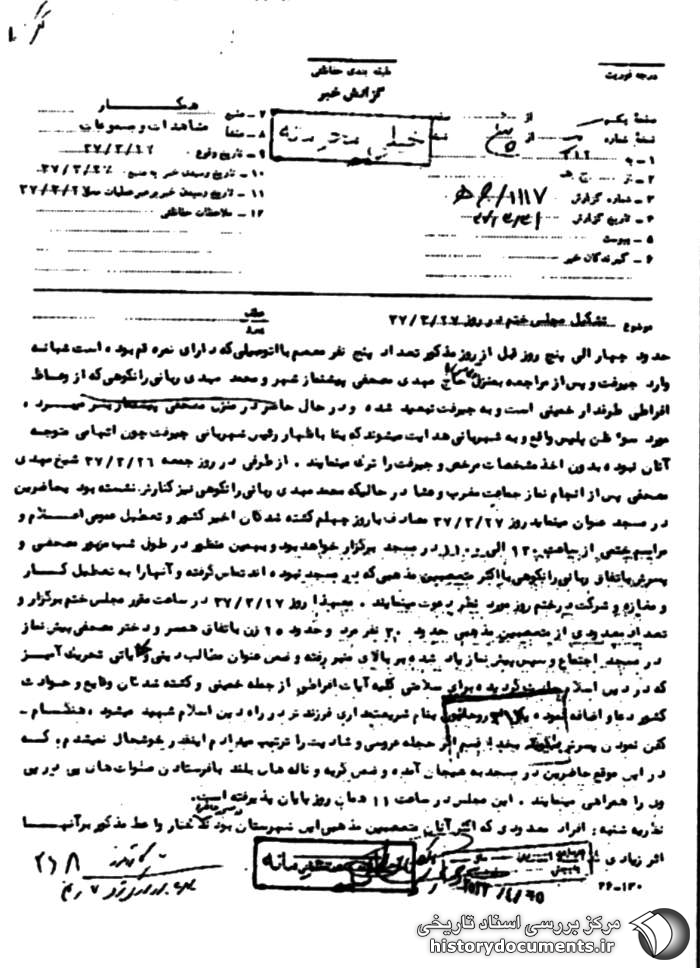 درجه فوریت
طبقه بندی حفاظتی
گزارش خبر
خیلی محرمانه
صفحه یکم از صفحه
نسخه شماره از نسخه
۱ ـ به
۲ ـ از
۳ ـ شماره گزارش ۱۱۱۷/ ﻫ
۴ ـ تاریخ گزارش
۵ ـ پیوست
۶ ـ گیرندگان خبر
۷ ـ منبع همکار
۸ ـ منشا مشاهدات و مسموعات
۹ ـ تاریخ وقوع ۳۷/۲/۲۶
۱۰ ـ تاریخ رسیدن خبر به منبع ۳۷/۲/۲۶
۱۱ ـ تاریخ رسیدن خبر برهبر عملیات محل ۳۷/۲/۲
۱۲ ـ ملاحظات حفاظتی
موضوع تشکیل مجلس ختم در روز ۳۷/۲/۲۷
حدود چهار الی پنج روز قبل از روز مذکور تعداد پنج نفر معمم با اتومبیلی که دارای نمره قم بوده است شبانه
وارد جیرفت و پس از مراجعه بمنزل حاج مهدی مصحفی پیشنماز شهر و محمد مهدی ربانی رانکوهی که از وعاظ
افراطی طرفدار خمینی است و به جیرفت تبعید شده و در حال حاضر در منزل مصحفی پیشنماز بسر میبرد ،
مورد سوء ظن پلیس واقع و به شهربانی هدایت میشوند که بنا باظهار رئیس شهربانی جیرفت چون اتهامی متوجه
آنان نبوده بدون اخذ مشخصات مرخص و جیرفت را ترک مینمایند . از طرفی در روز جمعه ۳۷/۲/۲۶ شیخ مهدی
مصحفی پس از انجام نماز جماعت مغرب و عشا در حالیکه محمد مهدی ربانی رانکوهی نیز کنارش نشسته بود بحاضرین
در مسجد عنوان مینماید روز ۳۷/۲/۲۷ مصادف با روز چهلم کشته شدگان اخیر کشور و تعطیل عمومی اعلام و
مراسم ختمی از ساعت الی ۱۱۰۰ در مسجد برگزار خواهد بود و بهمین منظور در طول شب مزبور مصحفی و
پسرش باتفاق ربانی رانکوهی با اکثر متعصبین مذهبی که در مسجد نبوده اند تماس گرفته و آنها را به تعطیل کار
و مغازه و شرکت در ختم روز مورد نظر دعوت مینمایند . معهذا روز ۳۷/۲/۲۷ در ساعت مقرر مجلس ختم برگزار و
تعداد معدودی از متعصبین مذهبی حدود ۳۰ نفر مرد و حدود ۱۵ زن باتفاق همسر و دختر مصحفی پیش نماز
در مسجد اجتماع و سپس پیش نماز یاد شده بر بالای منبر رفته و ضمن عنوان مطالب دینی و تحریک آمیز
که در دین اسلام برای سلامتی کلیه آیات افراطی از جمله خمینی و کشته شدگان وقایع و حوادث
کشور دعا و اضافه نموده روحانی بنام شریعتمداری فرزندش در راه دین اسلام شهید میشود ، هنگام ـ
کفن نمودن پسرش بخدا قسم اگر حجله عروسی و شادیت را ترتیب میدادم اینقدر خوشحال نمیشدم . که
در این موقع حاضرین در مسجد به هیجان آمده و ضمن گریه و ناله های بلند با فرستادن صلوات های پی در پی
وی را همراهی مینمایند . این مجلس در ساعت ۱۱ همان روز پایان پذیرفته است .
نظریه شنبه : افراد معدودی که اکثر آنان متعصبین مذهبی این شهرستان بود گفتار واعظ مذکور بر آنها
اثر زیادی
خیلی محرمانه
۲۶-۱۳۰
مرکز بررسی اسناد تاریخی
historydocuments.ir